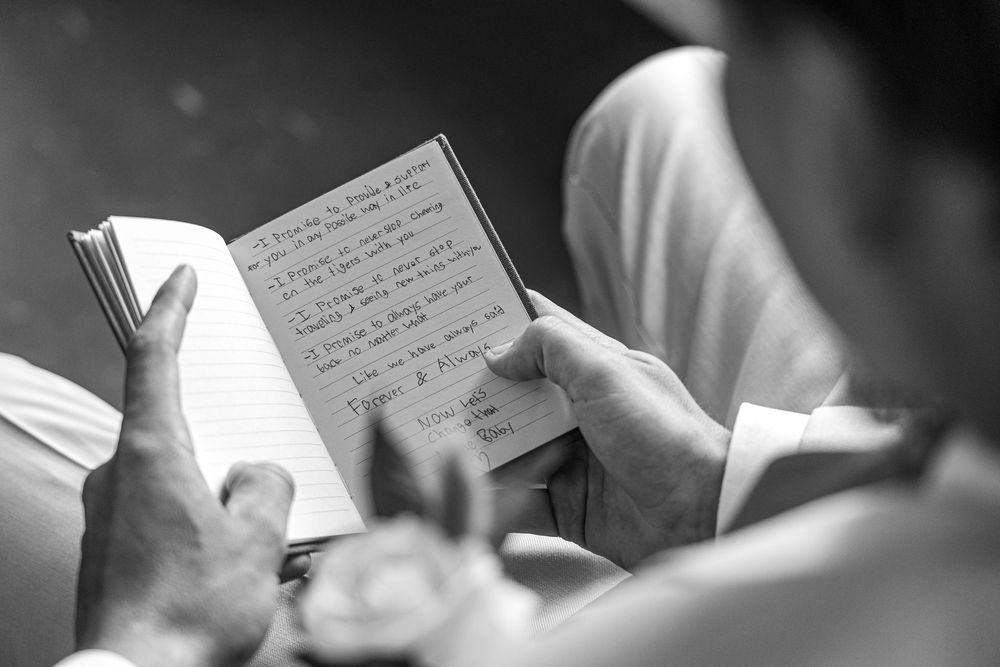 -I Promise to provide & support
for you in any possible way in life
-I Promise to never stop cheering
on the tigers with you
-I Promise to never stop
traveling & seeing new things with you
-I Promise to always have your
back no matter what
Like we have always said
Forever & Always
Now Let's
change that
Baby